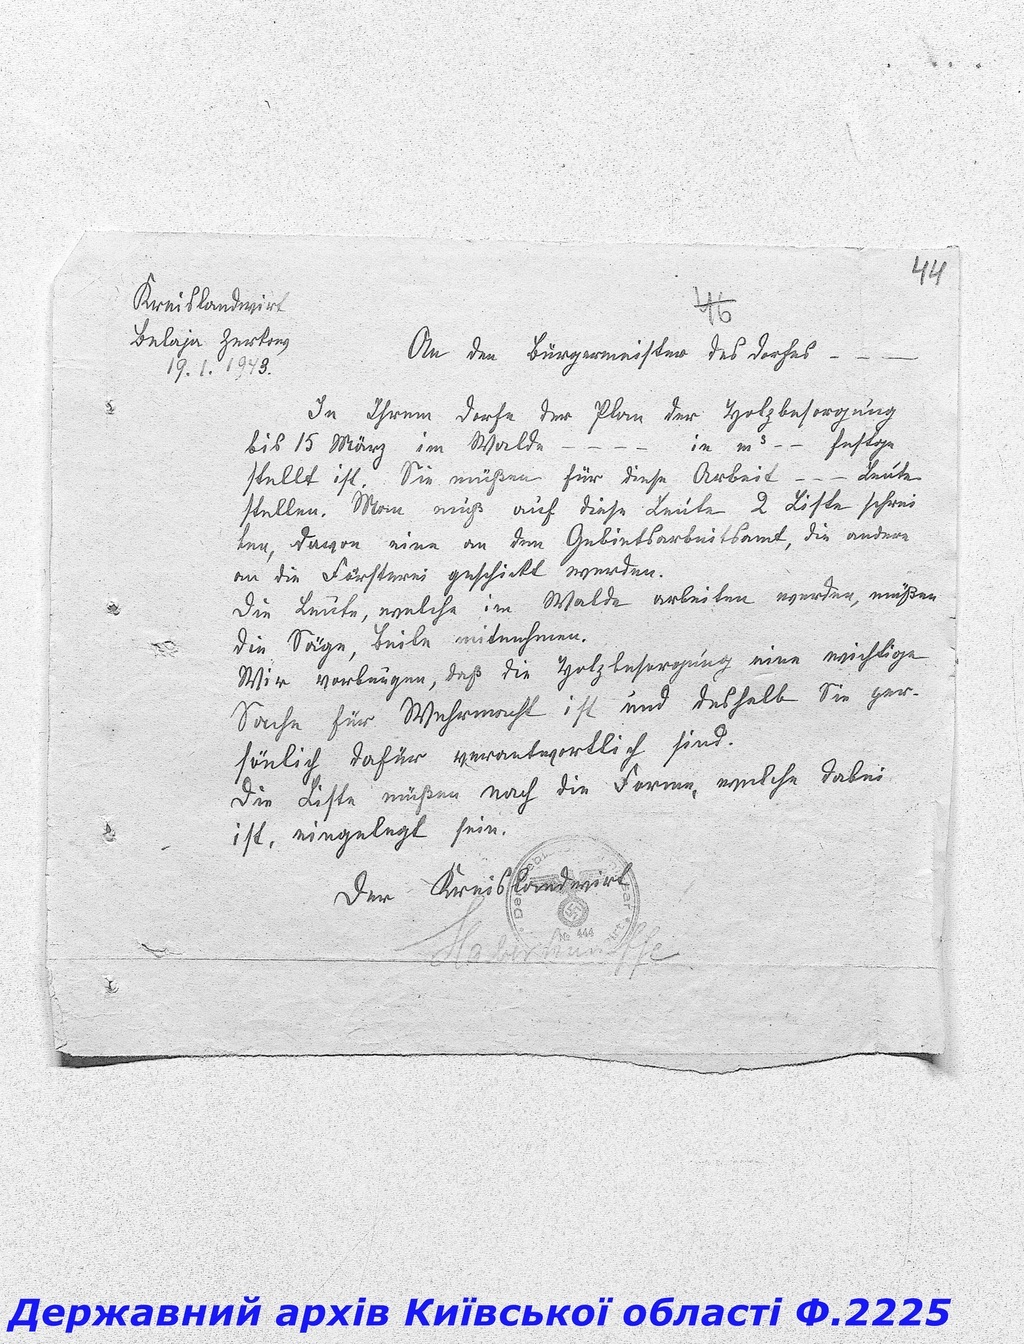 44
46
Kreislandwirt
Belaja Zerkow
19. 1. 1943.
An den Bürgermeister des Dorfes - - —
In Ihrem Dorfe der Plan der Holzbesorgung
bis 15 März im Walde - - - - in m³ - - festge
stellt ist. Sie müßen für diese Arbeit - - - Leute
stellen. Man muß auf diese Leute 2 Liste schrei
ben, davon eine an dem Gebietsarbeitsamt, die andere
an die Försterei geschickt werden.
Die Leute, welche im Walde arbeiten werden, müßen
die Säge, Beile mitnehmen.
Wir vorbeugen, daß die Holzbesorgung eine wichtige
Sache für Wehrmacht ist und deshalb Sie per-
sönlich dafür verantwortlich sind.
Die Liste müßen nach die Forme, welche dabei
ist, eingelegt sein.
Der Kreislandwirt
№ 444
Державний архів Київської області Ф.2225